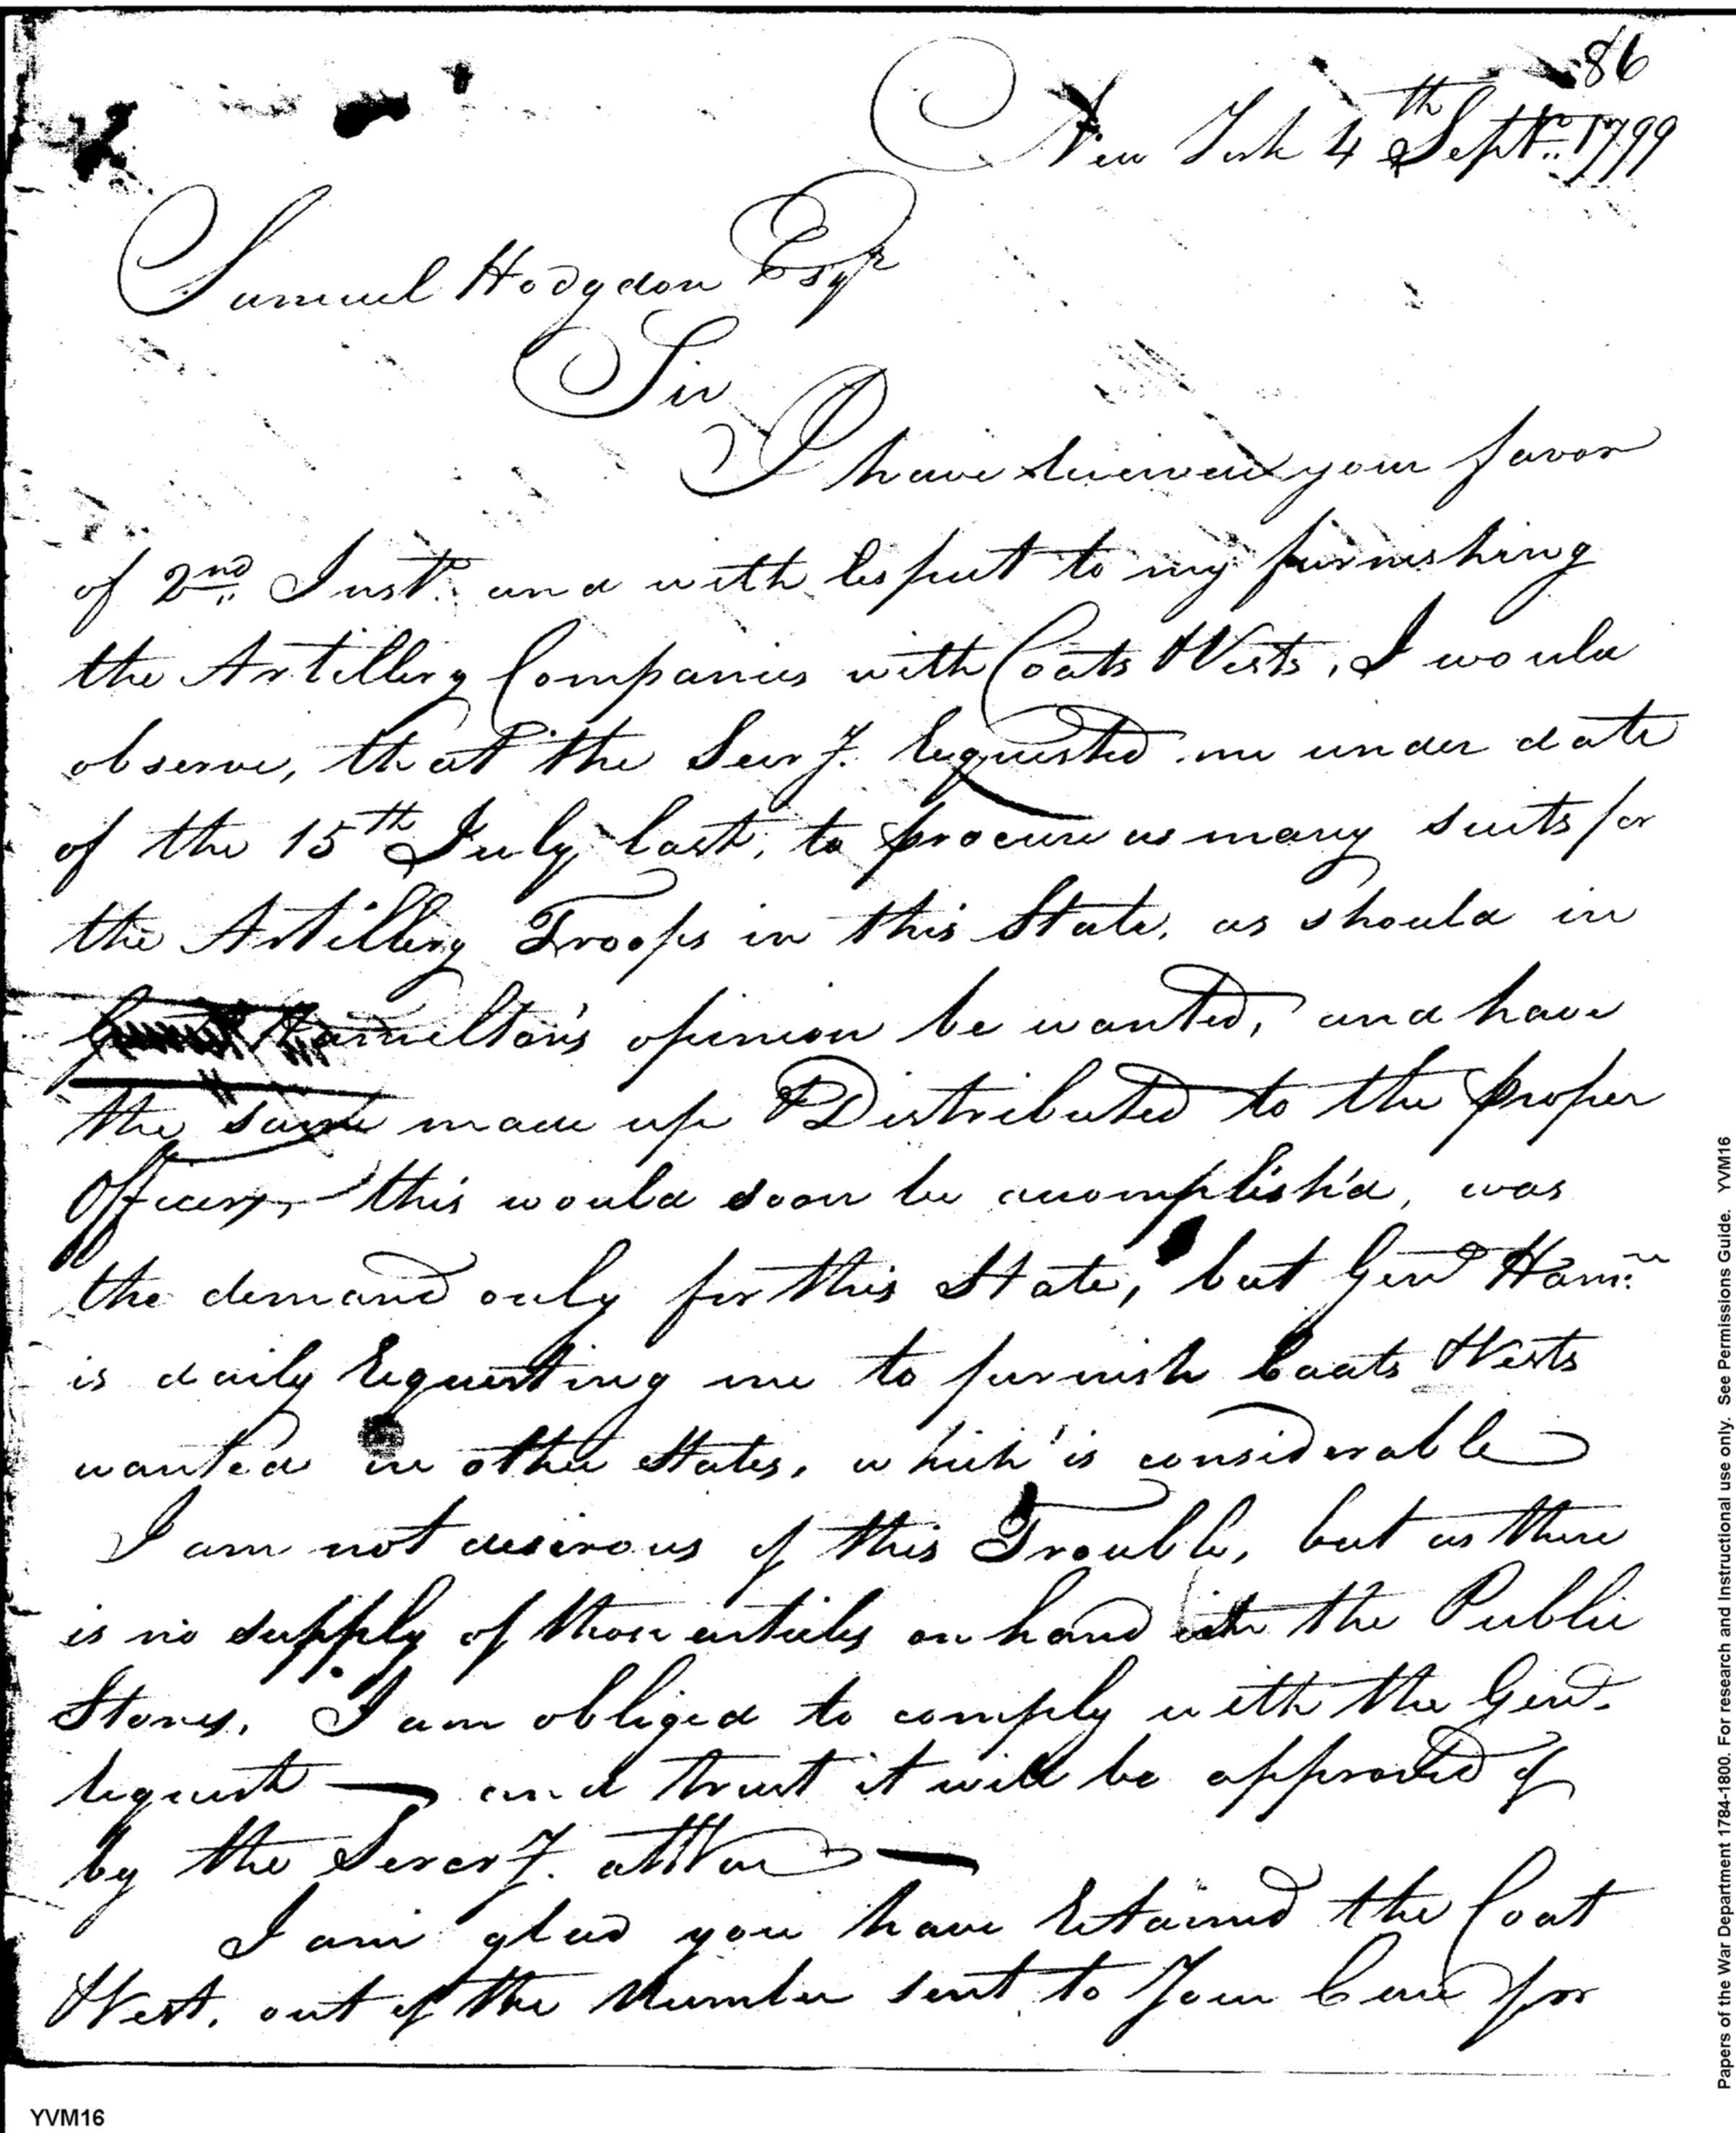 86
New York 4th Septr. 1799
Samuel Hodgdon Esqr
Sir
I have received your favor
of 2nd Inst. and with respect to my furnishing
the Artillery Companies with Coats & Vests, I would
observe, that the Secry. requested me under date
of the 15th July last, to procure as many suits for
the Artillery Troops in this State, as should in
Hamilton's opinion be wanted, and have
the same made up & Distributed to the proper
Officers, this would soon be accomplish'd, was
the demand only for this State, but Genl Hamn.
is daily requesting me to furnish Coats & Vests
wanted in other States, which is considerable
I am not desirous of this Trouble, but as there
is no supply of those articles on hand in the Public
Stores, I am obliged to comply with the Genl.
request — and trust it will be approved of
by the Secrry. at War —
I am glad you have retained the Coat
& Vest, out of the Number sent to Your Care for
YVM16
Papers of the War Department 1784-1800. For research and Instructional use only. See Permissions Guide. YVM16